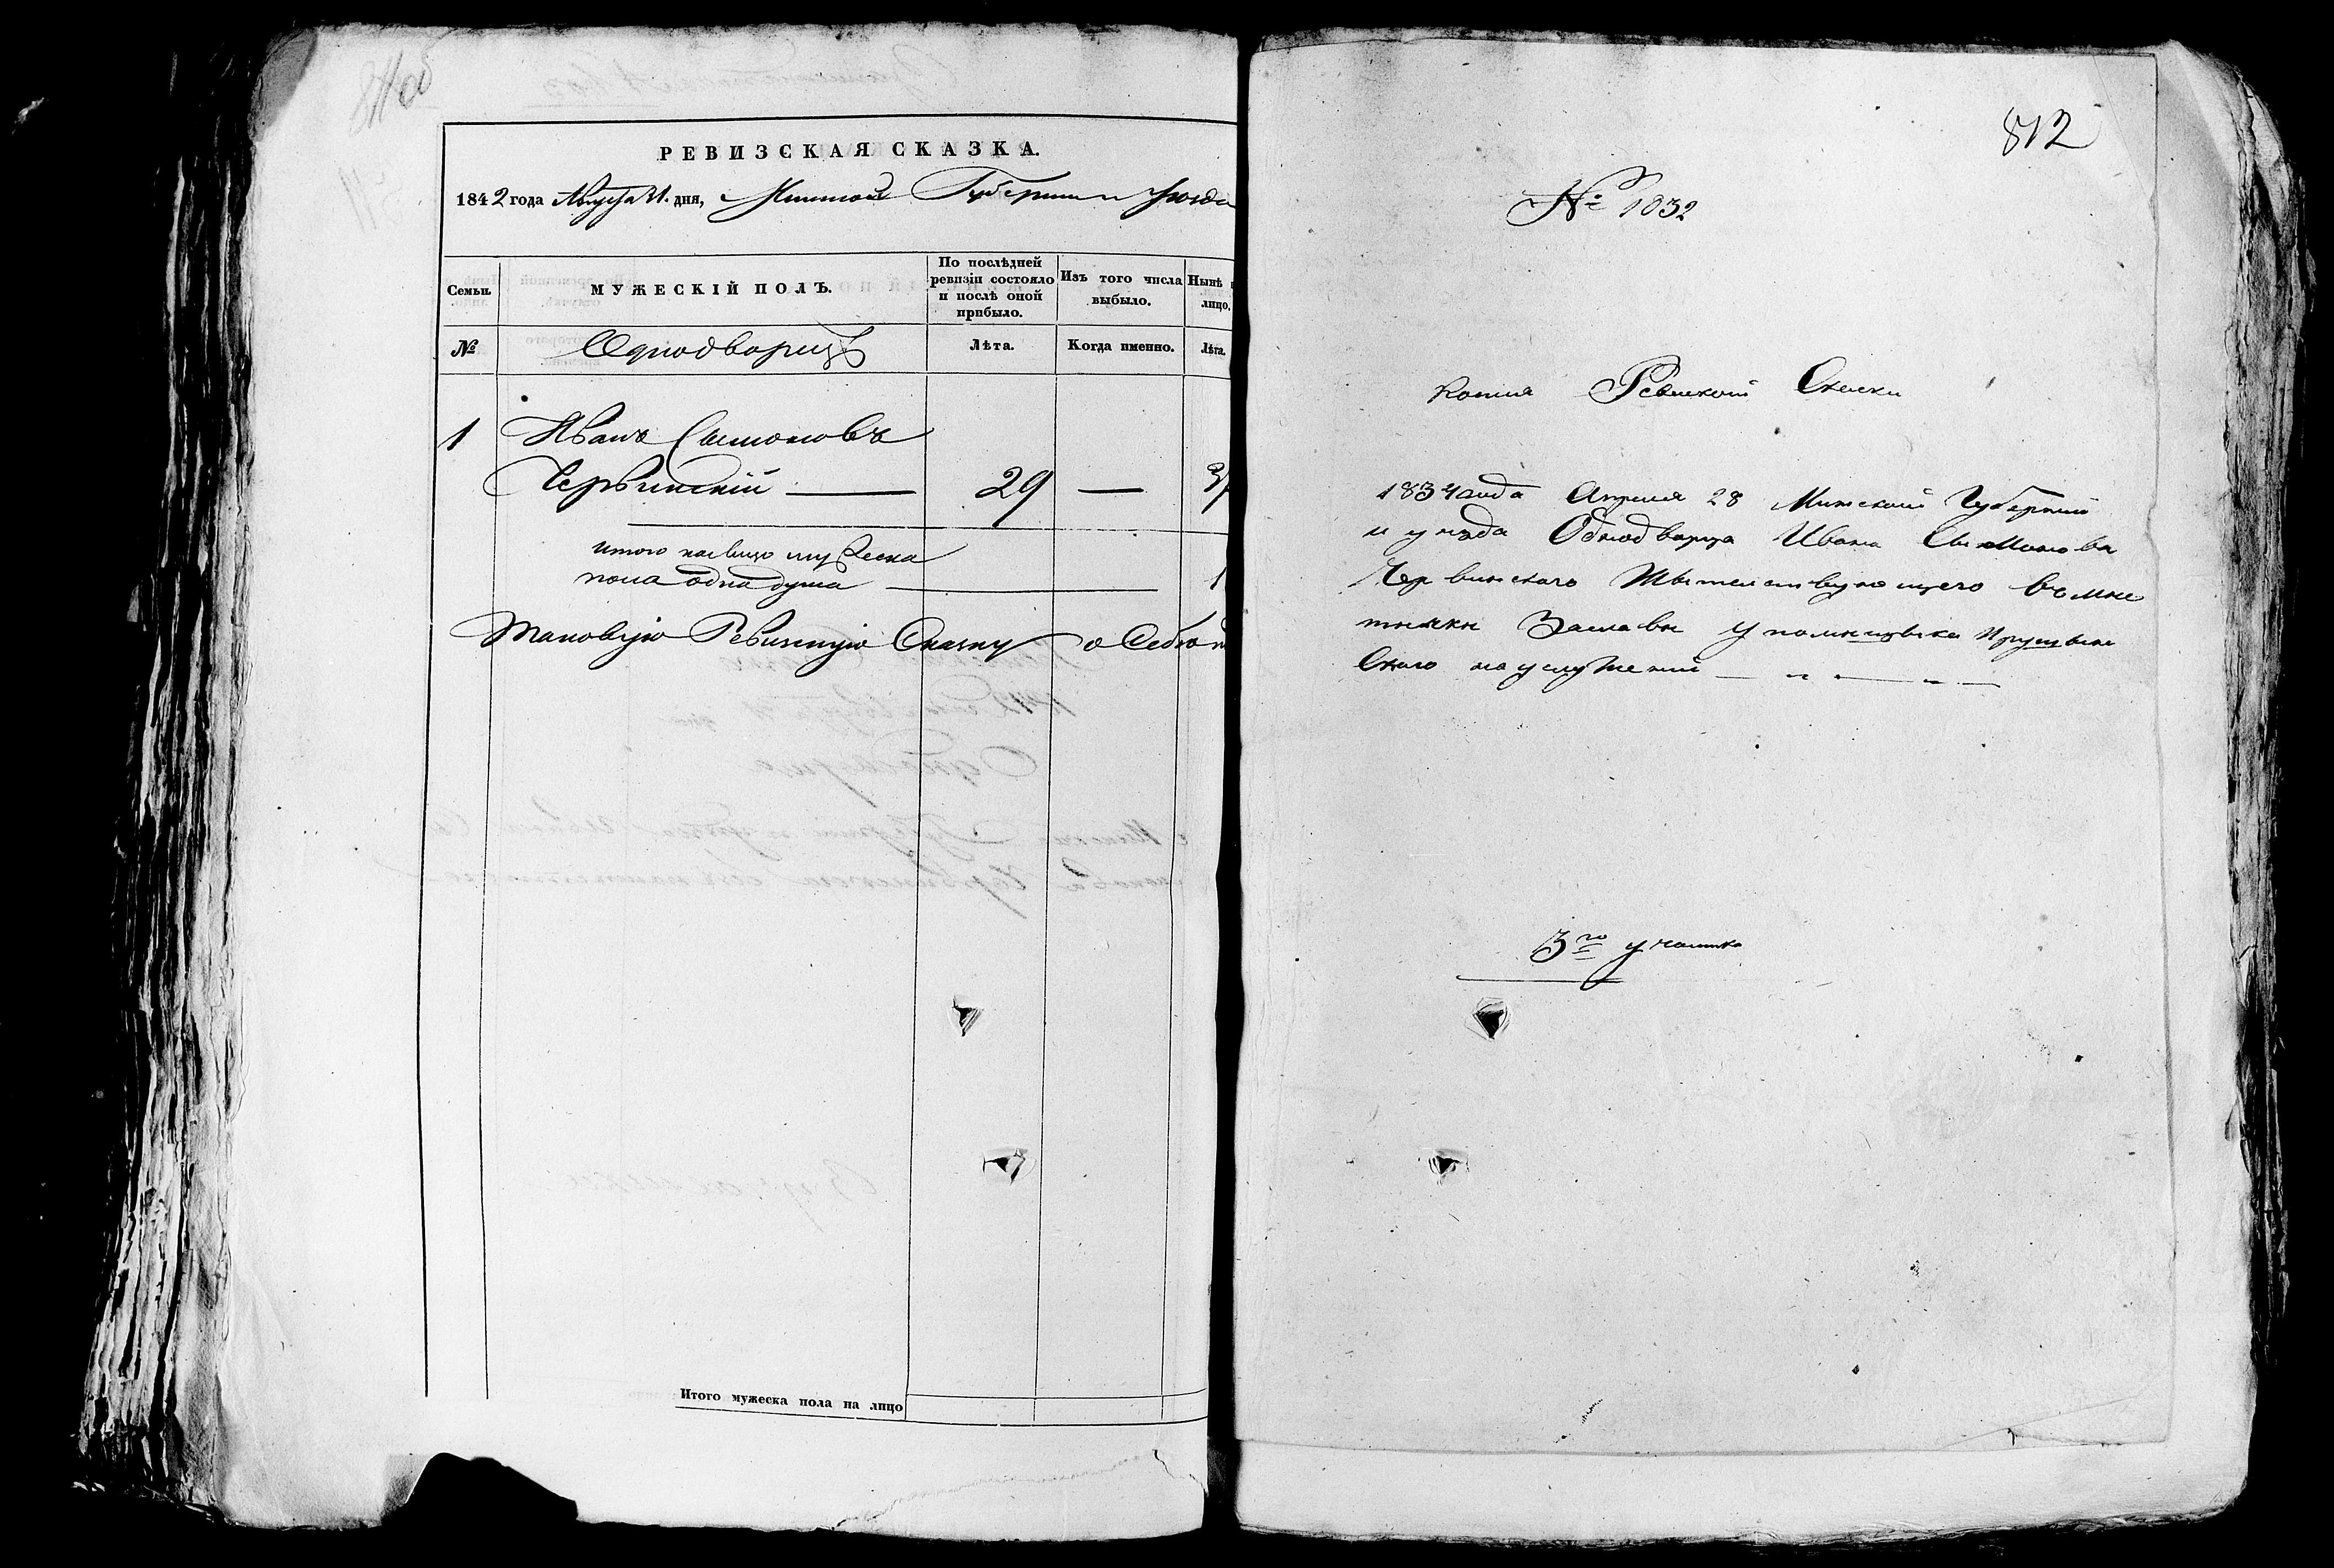 811об
РЕВИЗСКАЯ СКАЗКА.
1842 года Августа 21. дня, Минской Губернии и уезда
Семьи.
МУЖЕСКІЙ ПОЛЪ.
По послѣдней ревизіи состояло и послѣ оной прибыло.
Изъ того числа выбыло.
Нынѣ
лицо.
№
Однодворцъ
Лѣта.
Когда именно.
Лѣта.
1 Иванъ Сымоновъ
Червинскій — 29 —
итого налицо мужеска
пола одна душа — 1
Таковую Ревизскую Сказку о Себѣ
Итого мужеска пола на лицо
812
№ 1032
Копия Ревиской Скаски
1834 года Апреля 28 Минской Губернии
и уезда Однодворца Ивана Сымонова
Червинского Жытельствующего въ мес
тычки Заславы у помещыка
Ского на услужении — „ — „ —
3го участка